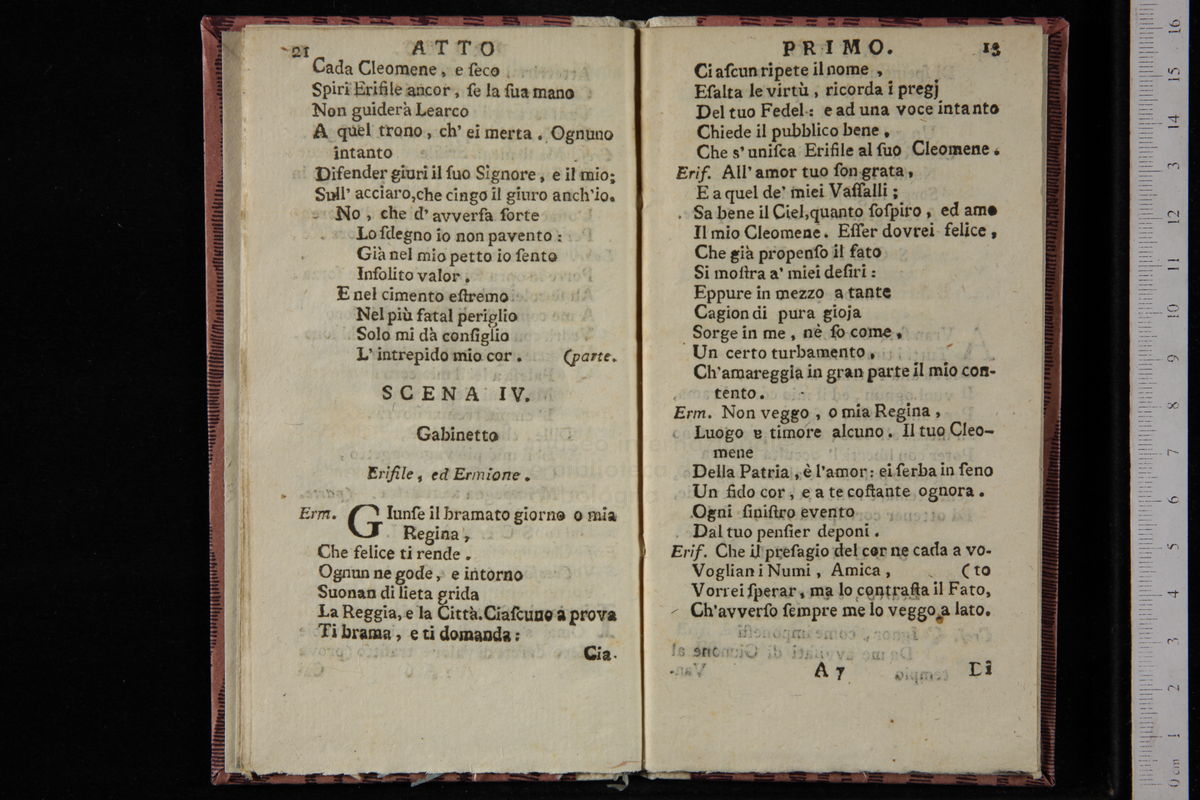 21 ATTO
Cada Cleomene, e ſeco
Spiri Erifile ancor, ſe la ſua mano
Non guiderà Learco
A quel trono, ch' ei merta. Ognuno
intanto
Difender giuri il ſuo Signore, e il mio;
Sull' acciaro, che cingo il giuro anch'io.
No, che d' avverſa ſorte
Lo ſdegno io non pavento:
Già nel mio petto io ſento
Inſolito valor.
E nel cimento eſtremo
Nel più fatal periglio
Solo mi dà conſiglio
L' intrepido mio cor. (parte.
SCENA IV.
Gabinetto
Erifile, ed Ermione.
Erm. GIunſe il bramato giorno o mia
Regina,
Che felice ti rende.
Ognun ne gode, e intorno
Suonan di lieta grida
La Reggia, e la Città. Ciaſcuno a prova
Ti brama, e ti domanda:
Cia-
PRIMO. 13
Ci aſcun ripete il nome,
Eſalta le virtù, ricorda i pregj
Del tuo Fedel: e ad una voce intanto
Chiede il pubblico bene,
Che s' uniſca Erifile al ſuo Cleomene.
Erif. All' amor tuo ſon grata,
E a quel de' miei Vaſſalli;
Sa bene il Ciel, quanto ſoſpiro, ed amo
Il mio Cleomene. Eſſer dovrei felice,
Che già propenſo il fato
Si moſtra a' miei deſiri:
Eppure in mezzo a tante
Cagion di pura gioja
Sorge in me, nè ſo come,
Un certo turbamento,
Ch'amareggia in gran parte il mio con-
tento.
Erm. Non veggo, o mia Regina,
Luogo a timore alcuno. Il tuo Cleo-
mene
Della Patria, è l'amor: ei ſerba in ſeno
Un fido cor, e a te coſtante ognora.
Ogni ſiniſtro evento
Dal tuo penſier deponi.
Erif. Che il preſagio del cor ne cada a vo-
Voglian i Numi, Amica, (to
Vorrei ſperar, ma lo contraſta il Fato,
Ch'avverſo ſempre me lo veggo a lato.
A 7 Di